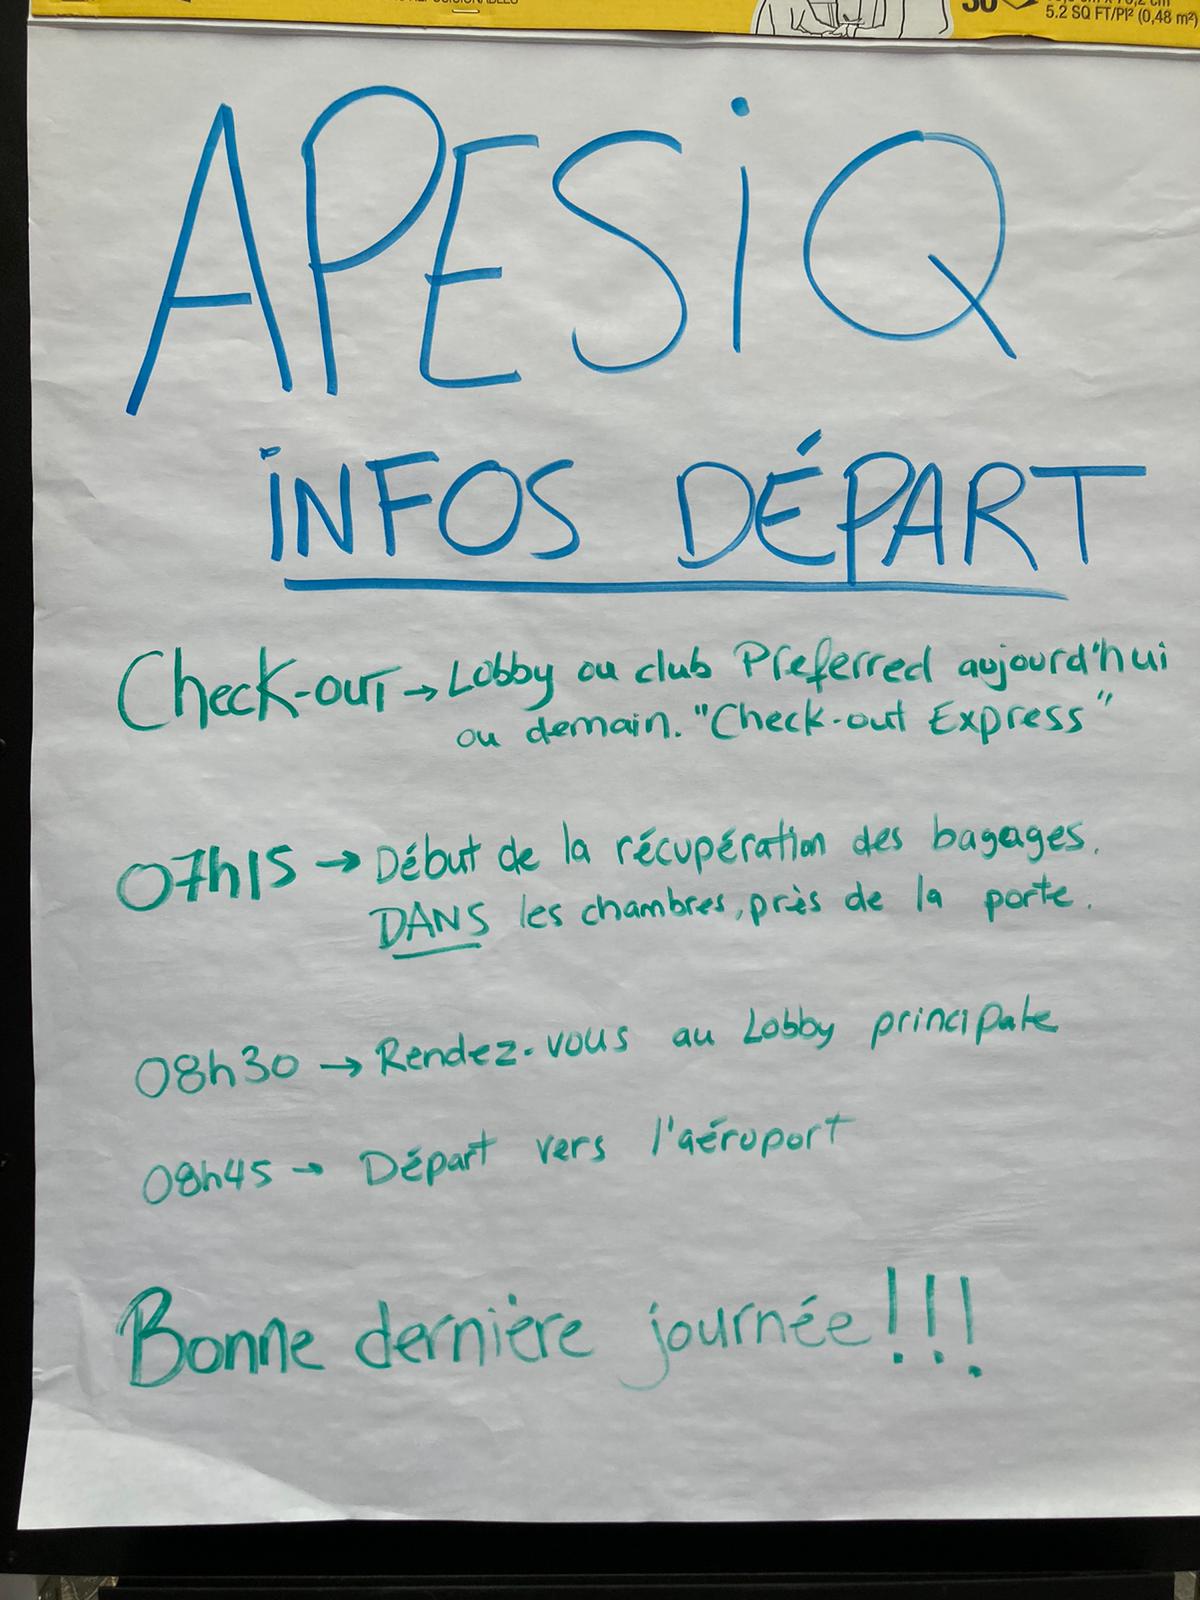 30
5.2 SQ FT/PI² (0,48 m²)
APESiQ
iNFOS DÉPART
Check-out → Lobby ou club Preferred aujourd'hui
ou demain. "Check-out Express"
07h15 → Début de la récupération des bagages.
DANS les chambres, près de la porte.
08h30 → Rendez-vous au Lobby principale
08h45 → Départ vers l'aéroport
Bonne dernière journée!!!